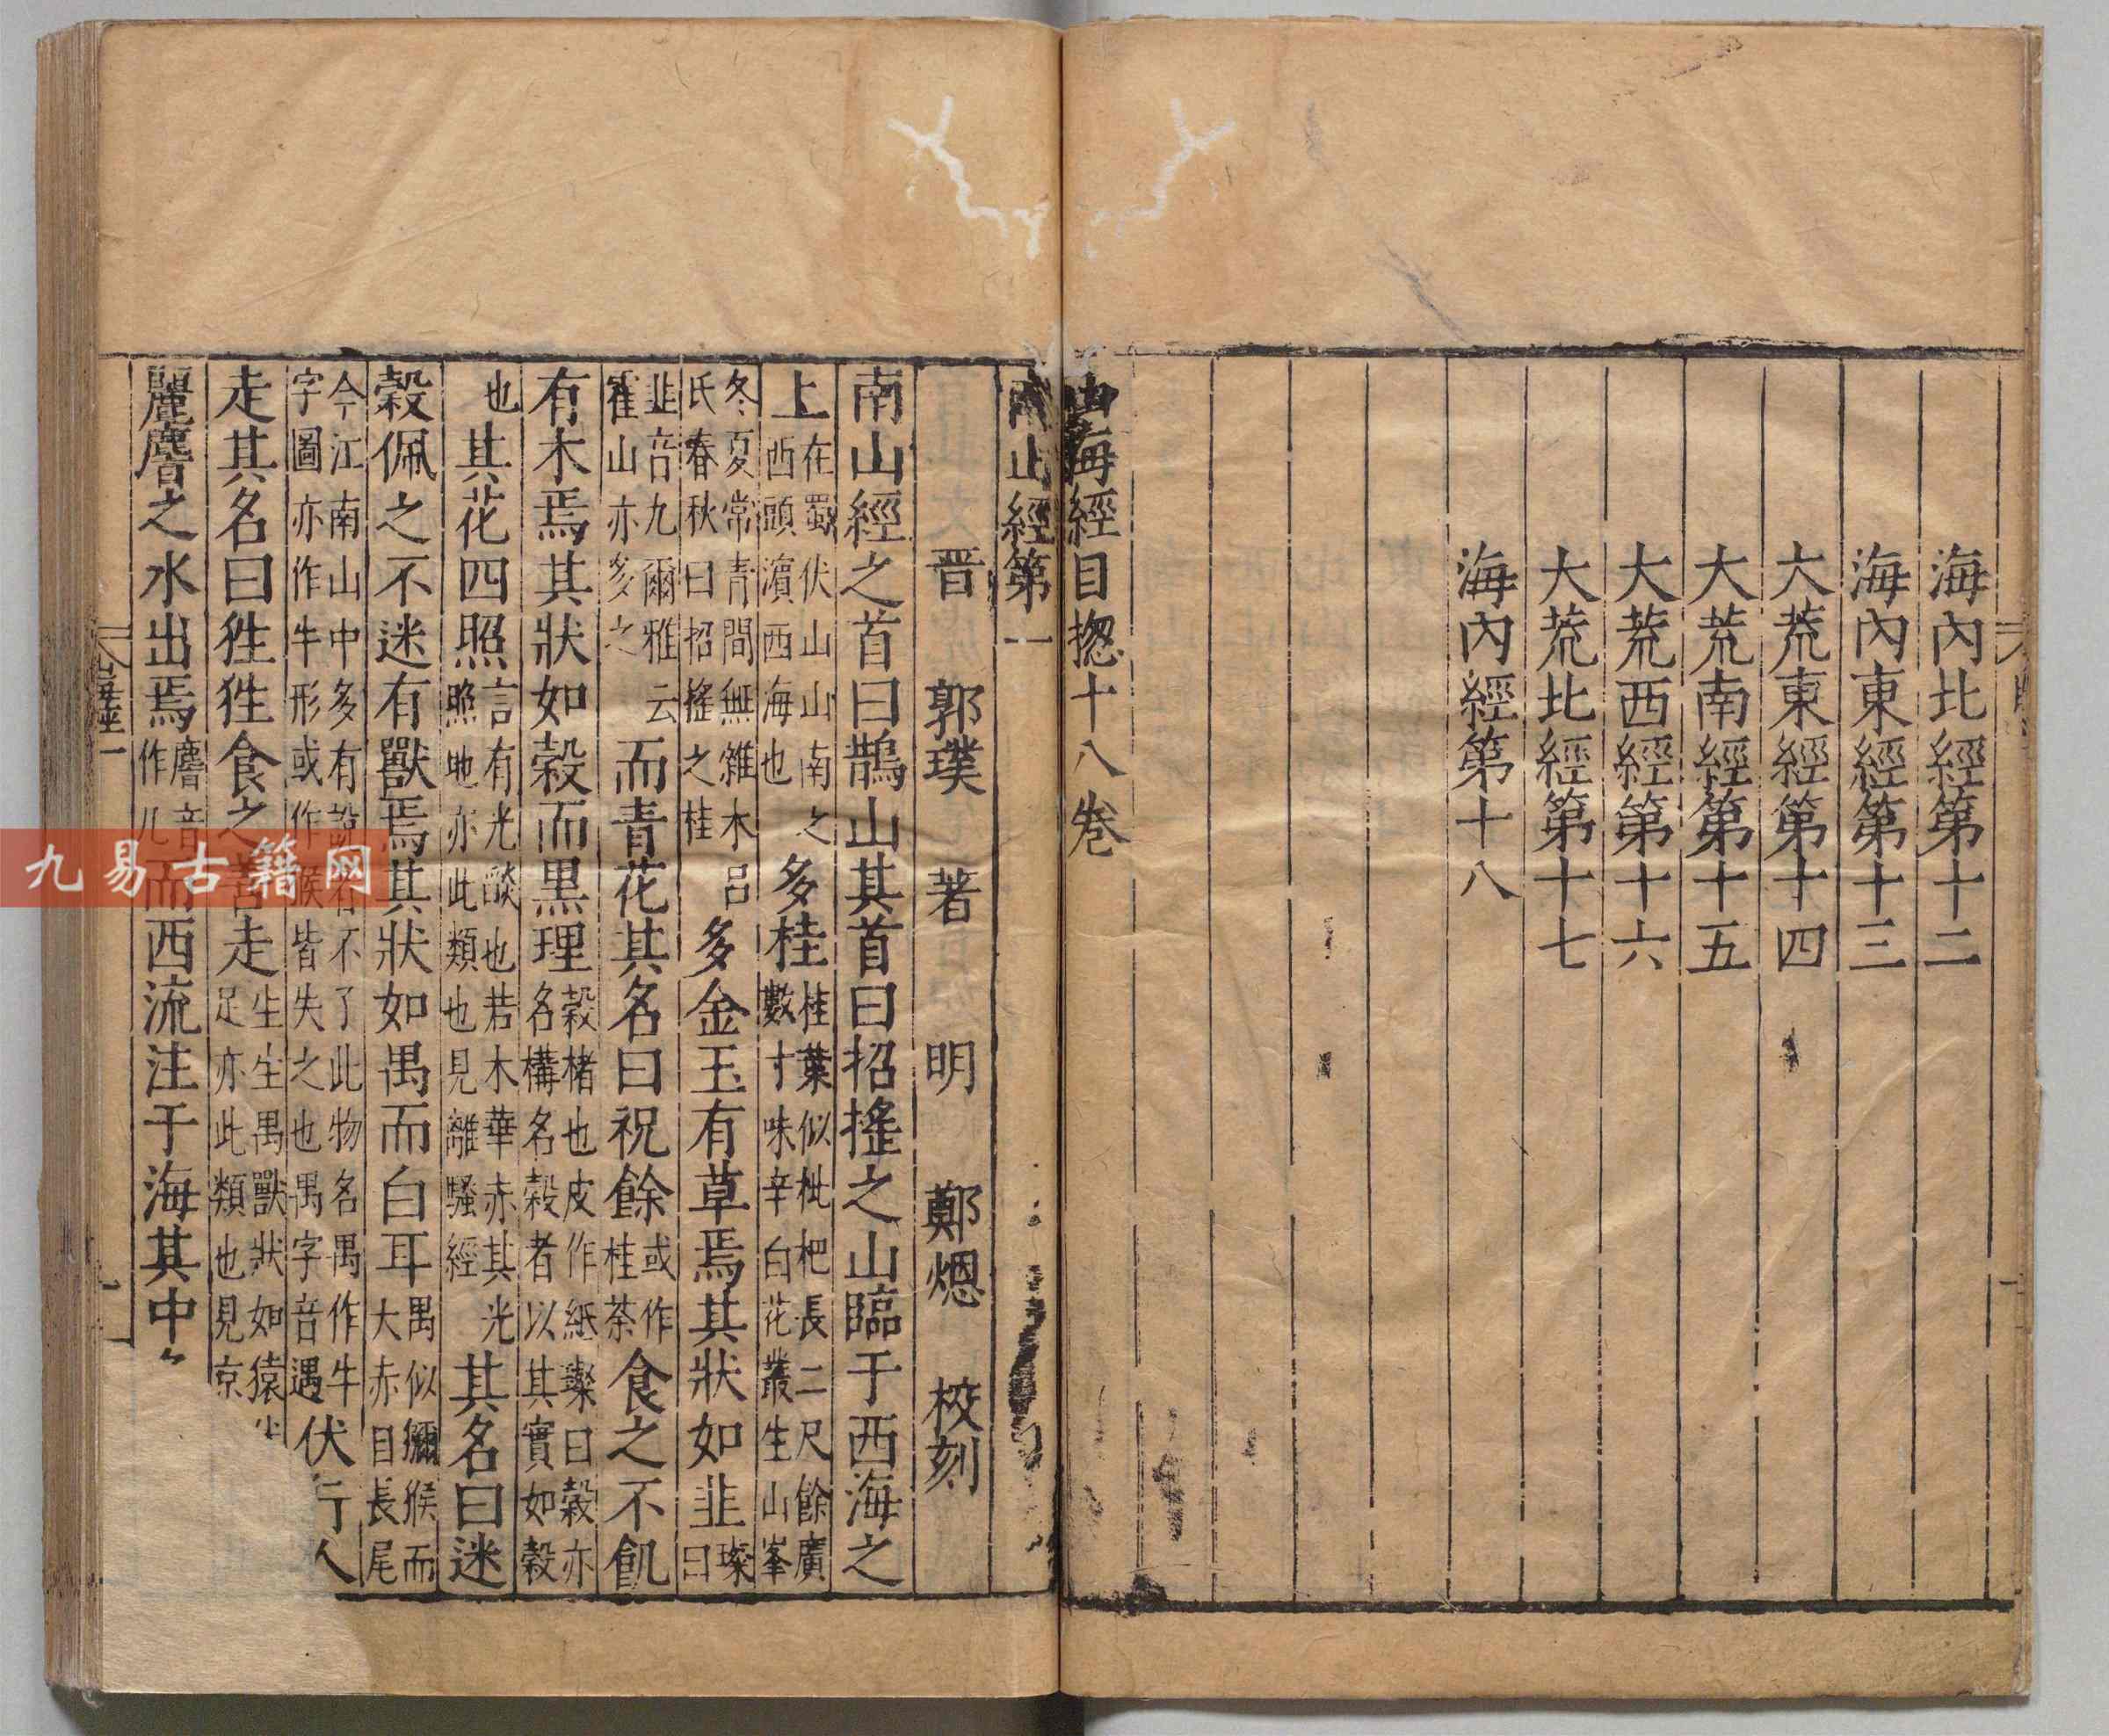 海內北經第十二
海內東經第十三
大荒東經第十四
大荒南經第十五
大荒西經第十六
大荒北經第十七
海內經第十八
山海經目揔十八卷
南山經第一
晉 郭璞 著 明 鄭煾 校刻
南山經之首曰鵲山其首曰招搖之山臨于西海之
上在蜀伏山山南之西頭濵西海也多桂桂葉似枇杷長二尺餘廣數寸味辛白花叢生山峯
冬夏常青間無雜木呂氏春秋曰招搖之桂多金玉有草焉其狀如韭璨曰
韭音九爾雅云霍山亦多之而青花其名曰祝餘或作桂荼食之不飢
有木焉其狀如榖而黒理榖楮也皮作紙璨曰榖亦名構名榖者以其實如榖
也其花四照言有光燄也若木華赤其光照地亦此類也見離騷經其名曰迷
榖佩之不迷有獸焉其狀如禺而白耳禺似獼猴而大赤目長尾
今江南山中多有說者不了此物名禺作牛字圖亦作牛形或作猴皆失之也禺字音遇伏行人
走其名曰狌狌食之善走生生禺獸狀如猿足亦此類也見京
麗𪊨之水出焉𪊨音作几而西流注于海其中
山海經一
九易古籍网